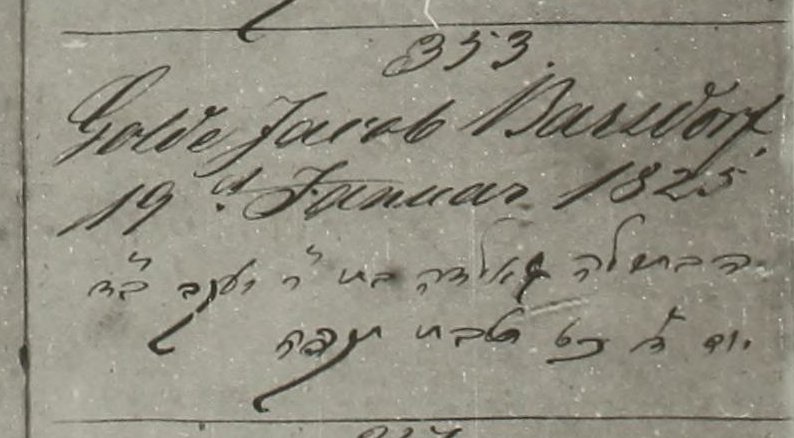 353.
Golde Jacob Barsdorf.
19 d. Januar 1825
הבתולה גאלדה בת ר' יעקב ב"ד
יום ד' כט טבת תקפה